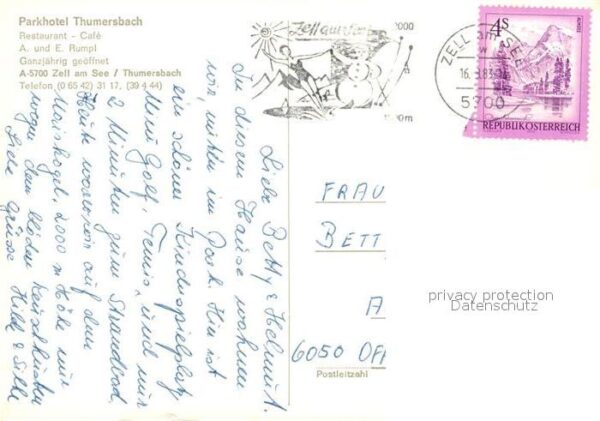 Parkhotel Thumersbach
Restaurant - Café
A. und E. Rumpl
Ganzjährig geöffnet
A-5700 Zell am See / Thumersbach
Telefon (0 65 42) 31 17, (39 4 44)
Zell am See
2000
ZELL am SEE
16. 83
5700
4s
REPUBLIK ÖSTERREICH
Liebe Betty & Helmut.
In diesem Hause wohnen
wir, mitten im Park. Hier ist
ein schöner Kinderspielplatz
Mini Golf, Tennis, und nur
2 Minuten zum Strandbad.
Heute waren wir auf dem
2000 m Höhe
wegen den beiden
Liebe Grüße Hilde &
FRAU
BETT
A
6050 OFF
Postleitzahl
privacy protection
Datenschutz